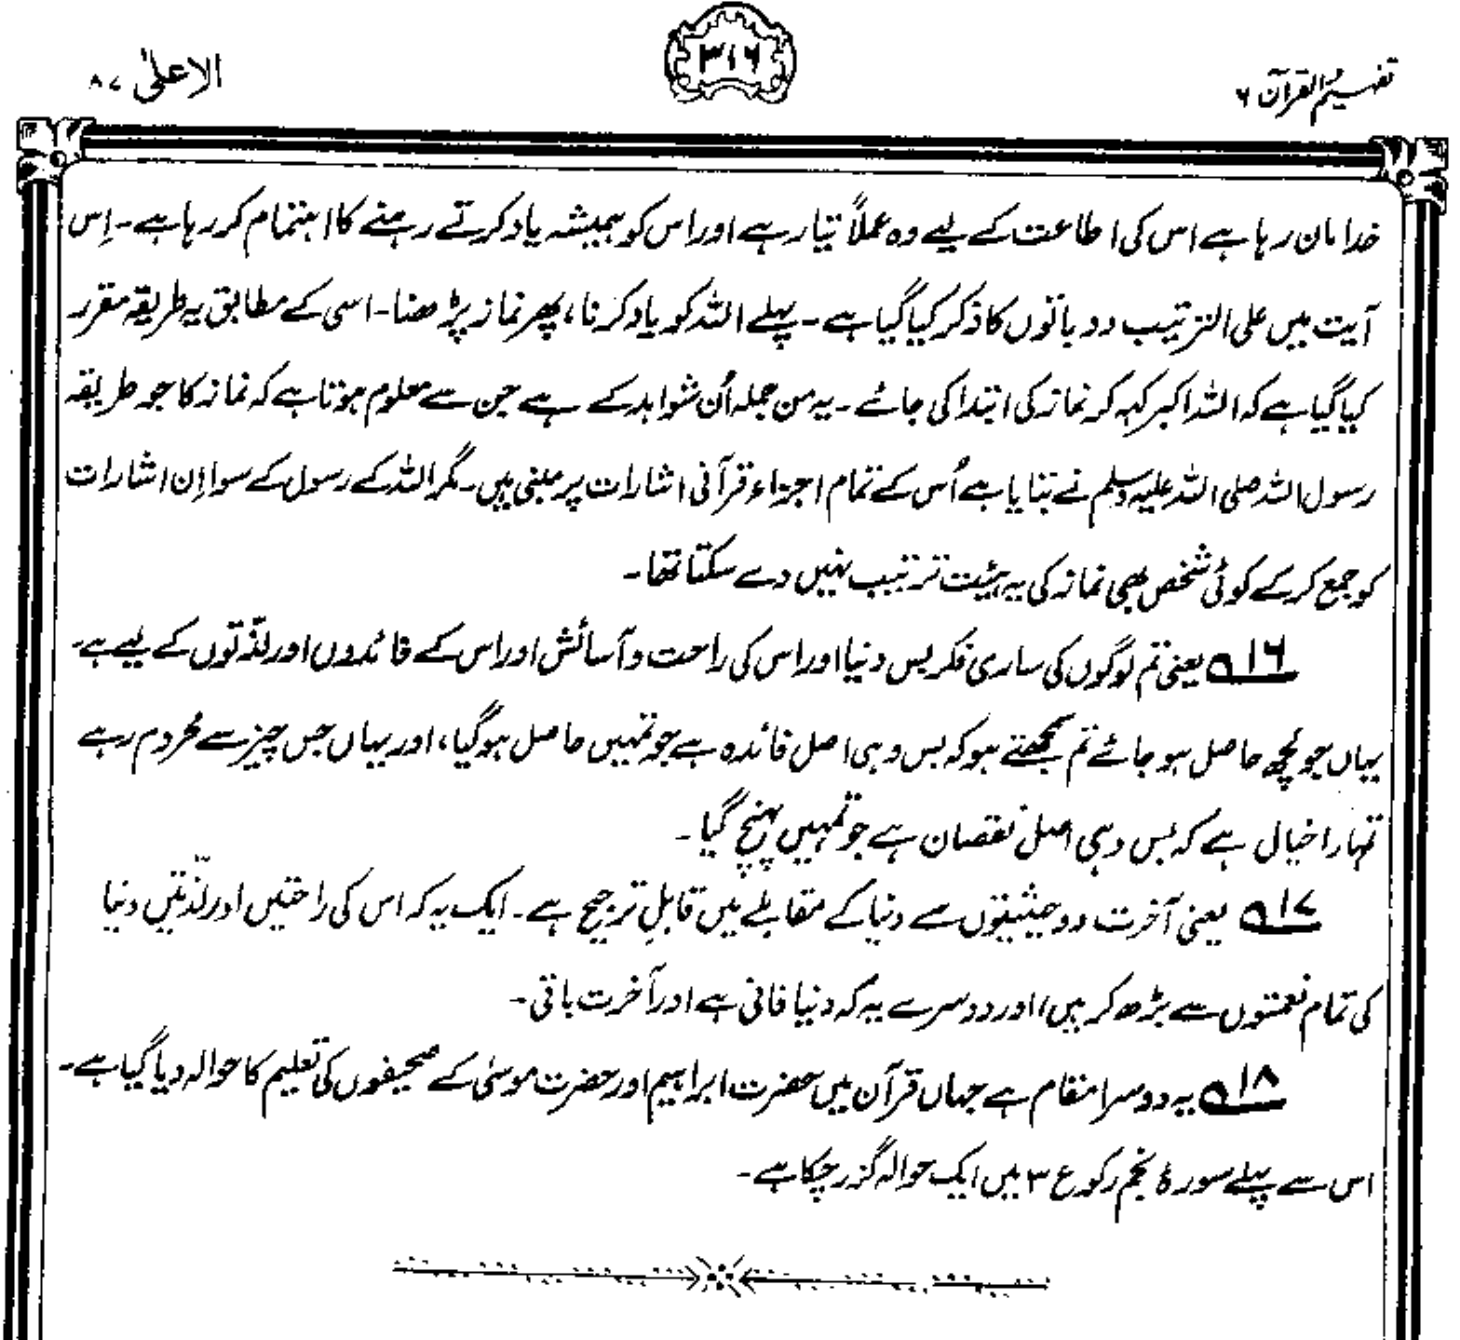 تفہیم القرآن ۶
۳۱۶
الاعلیٰ ۸۷
خدا مان رہا ہے اس کی اطاعت کے لیے وہ عملاً تیار ہے اور اس کو ہمیشہ یاد کرتے رہنے کا اہتمام کر رہا ہے۔ اِس
آیت میں علی الترتیب دو باتوں کا ذکر کیا گیا ہے۔ پہلے اللہ کو یاد کرنا، پھر نماز پڑھنا۔ اسی کے مطابق یہ طریقہ مقرر
کیا گیا ہے کہ اللہ اکبر کہہ کر نماز کی ابتدا کی جائے۔ یہ من جملہ اُن شواہد کے ہے جن سے معلوم ہوتا ہے کہ نماز کا جو طریقہ
رسول اللہ صلی اللہ علیہ وسلم نے بتایا ہے اُس کے تمام اجزاء قرآنی اشارات پر مبنی ہیں۔ مگر اللہ کے رسول کے سوا اِن اشارات
کو جمع کر کے کوئی شخص بھی نماز کی یہ ہیئت ترتیب نہیں دے سکتا تھا۔
۱۶ یعنی تم لوگوں کی ساری فکر بس دنیا اور اس کی راحت و آسائش اور اس کے فائدوں اور لذّتوں کے لیے ہے۔
یہاں جو کچھ حاصل ہو جائے تم سمجھتے ہو کہ بس وہی اصل فائدہ ہے جو تمہیں حاصل ہو گیا، اور یہاں جس چیز سے محروم رہے
تمہارا خیال ہے کہ بس وہی اصل نقصان ہے جو تمہیں پہنچ گیا۔
۱۷ یعنی آخرت دو حیثیتوں سے دنیا کے مقابلے میں قابلِ ترجیح ہے۔ ایک یہ کہ اس کی راحتیں اور لذّتیں دنیا
کی تمام نعمتوں سے بڑھ کر ہیں، اور دوسرے یہ کہ دنیا فانی ہے اور آخرت باقی۔
۱۸ یہ دوسرا مقام ہے جہاں قرآن میں حضرت ابراہیم اور حضرت موسیٰ کے صحیفوں کی تعلیم کا حوالہ دیا گیا ہے۔
اس سے پہلے سورۂ نجم رکوع ۳ میں ایک حوالہ گزر چکا ہے۔